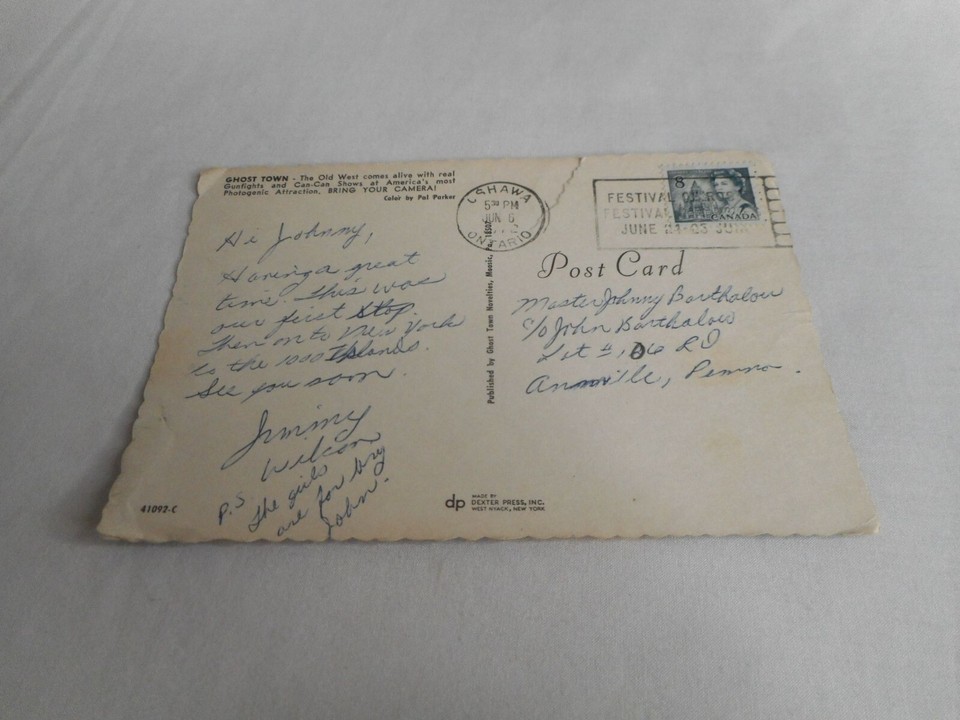 GHOST TOWN - The Old West comes alive with real
Gunfights and Can-Can Shows at America's most
Photogenic Attraction. BRING YOUR CAMERA!
Color by Pal Parker
Hi Johnny,
Having a great
time. This was
our first stop.
Then on to New York
to the 1000 Islands.
See you soon.
Jimmy
Wilson
P.S. The girls
are for big
John.
41092-C
Published by Ghost Town Novelties, Moosic, Pa. 18507
dp
MADE BY
DEXTER PRESS, INC.
WEST NYACK, NEW YORK
OSHAWA
5 PM
JUN 6
ONTARIO
FESTIVAL
FESTIVAL
JUNE
8
CANADA
Post Card
Master Johnny Barthalow
c/o John Barthalow
Lot #, 06 RD
Annville, Penna.